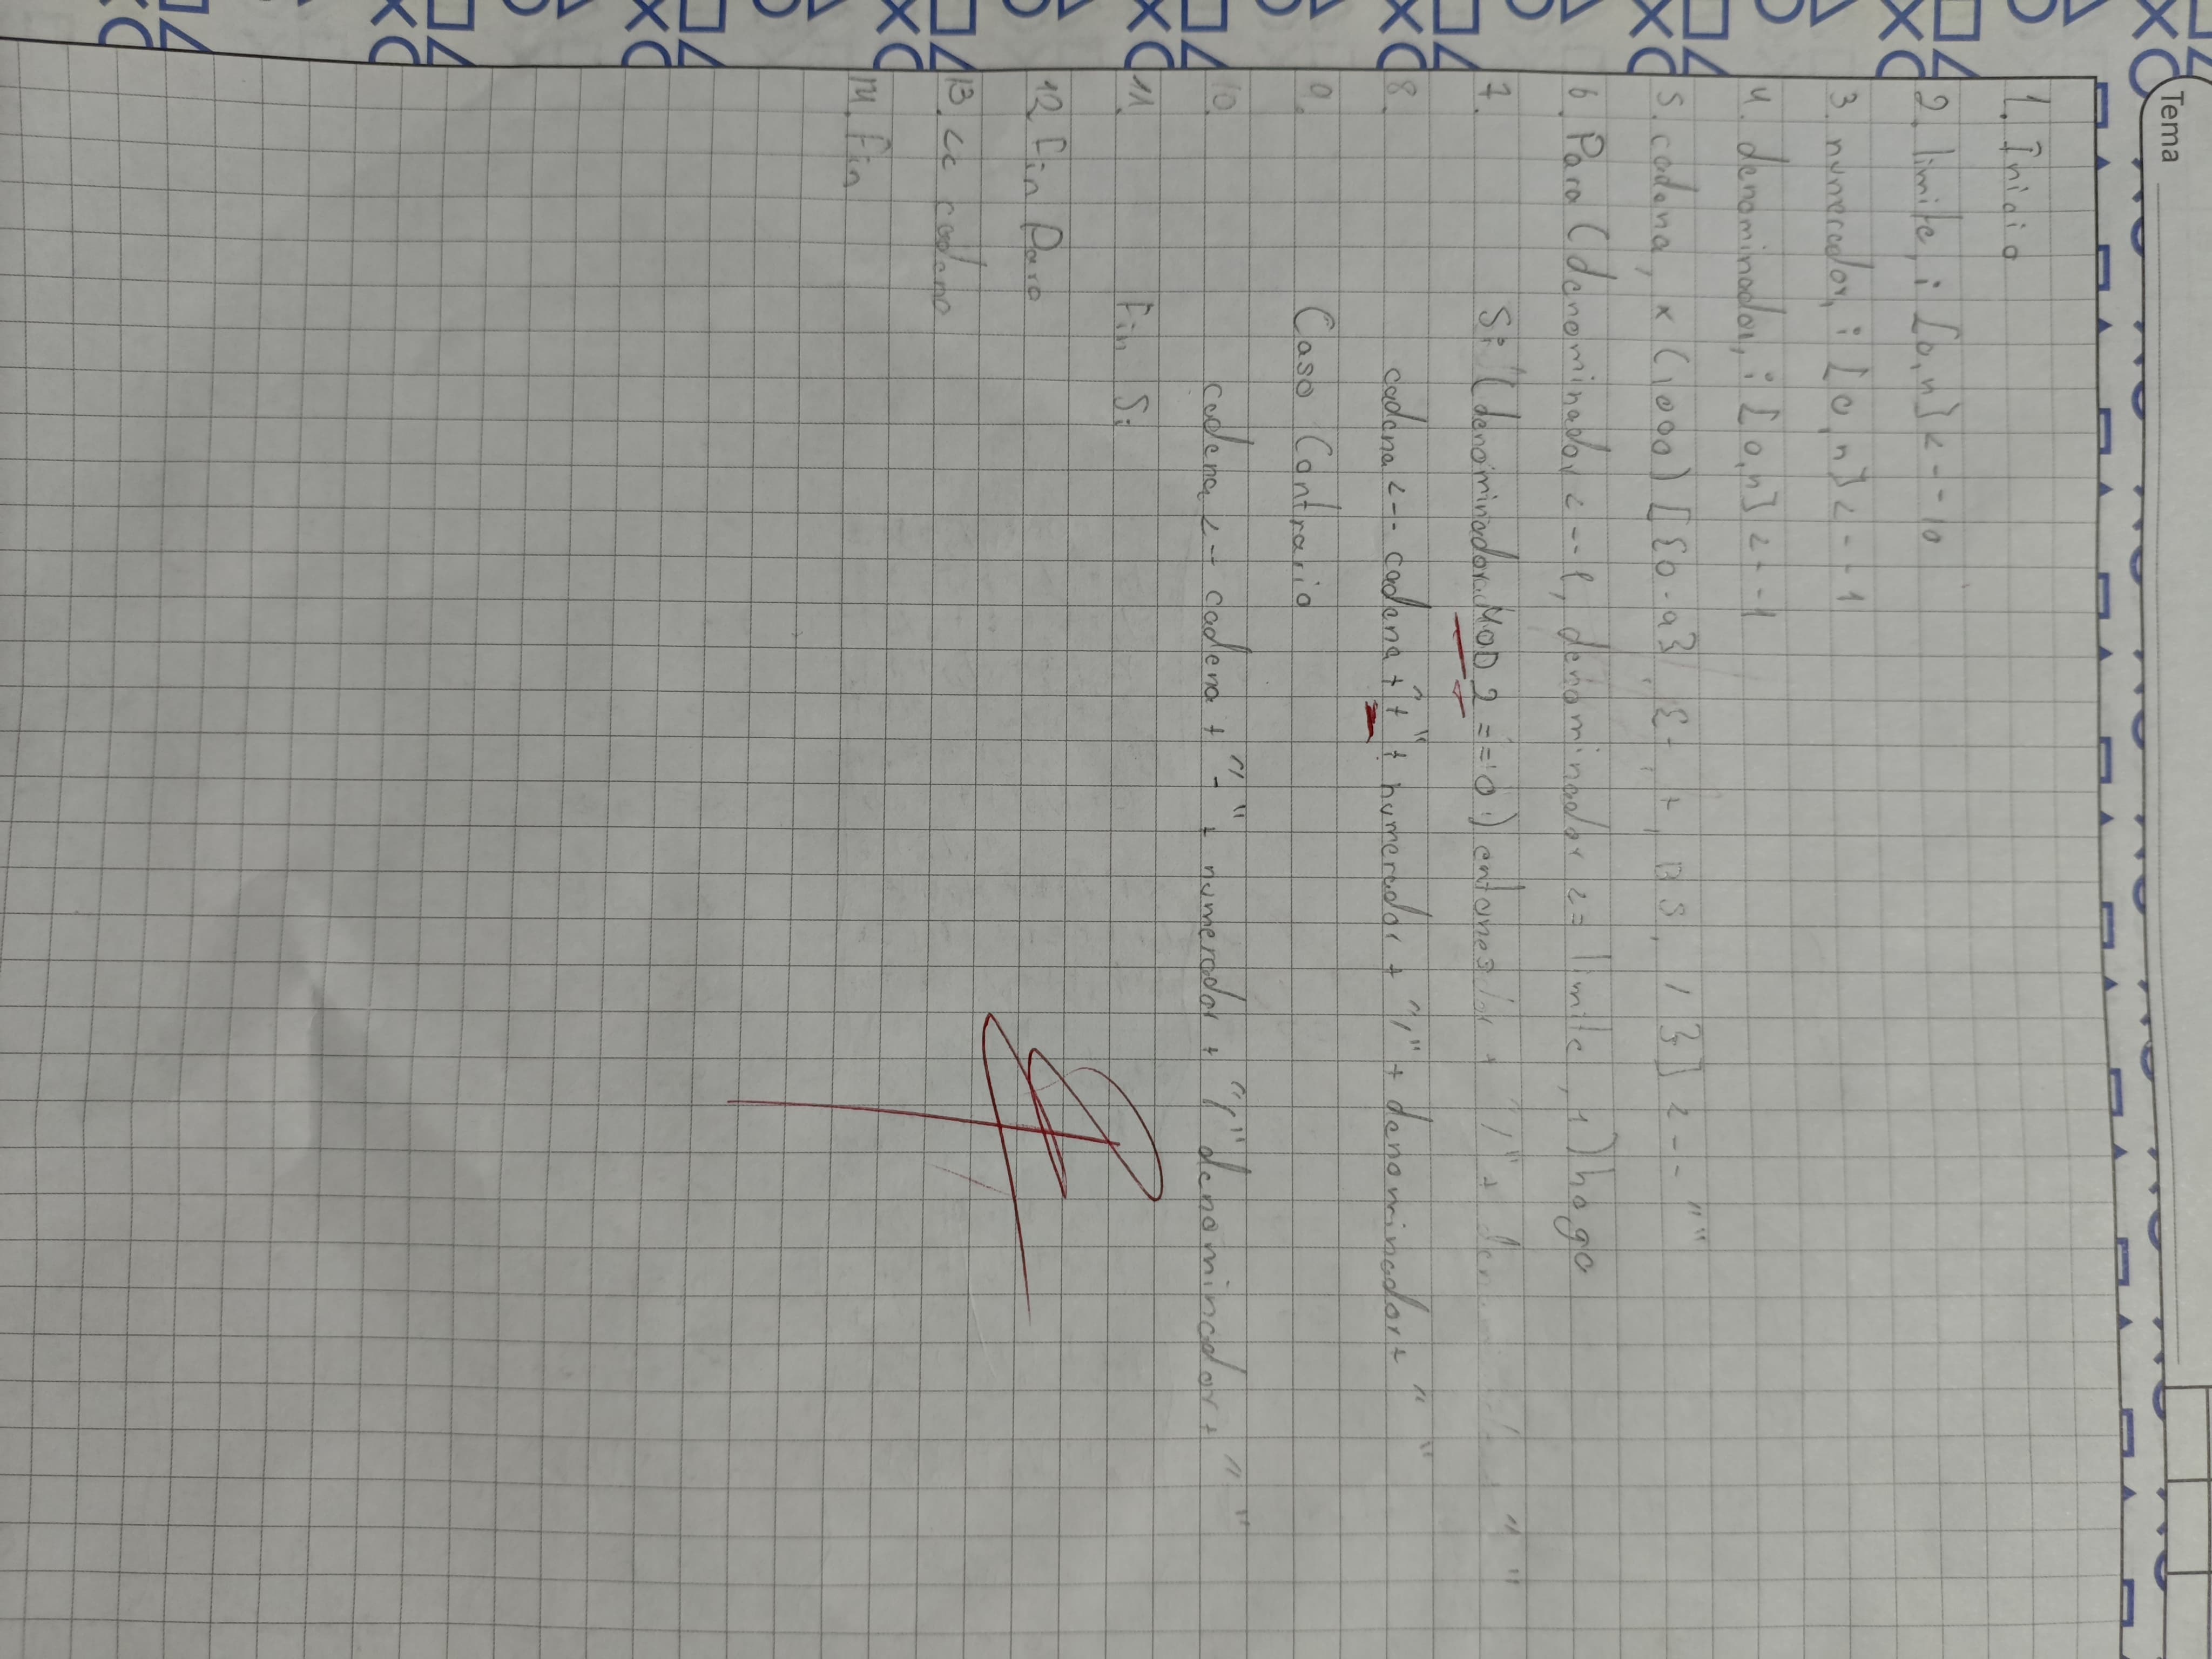 Tema
1. Inicio
2. limite, i [0,n] <-- 10
3. numerador, i [0,n] <-- 1
4. denominador, i [0,n] <-- 1
5. cadena, x (1000) [{0-9}, {-, +, BS, /}] <-- ""
6. Para (denominador <-- 1, denominador <= limite, 1) haga
7. Si (denominador MOD 2 == 0) entonces
8. cadena <-- cadena + "+" + numerador + "/" + denominador + " "
9. Caso Contrario
10. cadena <-- cadena + "-" + numerador + "/" denominador + " "
11. Fin Si
12 Fin Para
13. << cadena
14. Fin